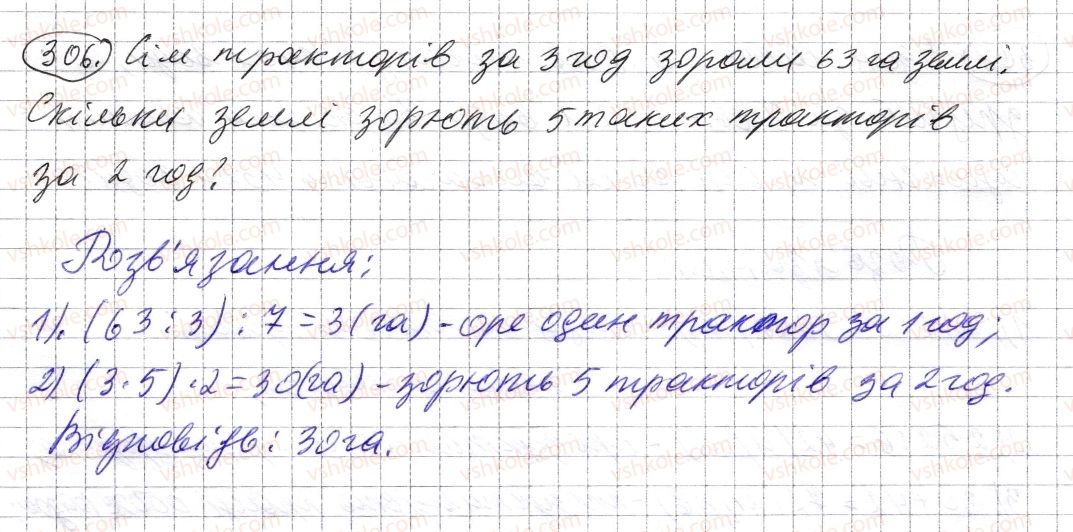 306. Сім тракторів за 3 год зорали 63 га землі.
Скільки землі зорють 5 таких тракторів
за 2 год?
Розв'язання:
1). (63 : 3) : 7 = 3 (га) - оре один трактор за 1 год;
2) (3 · 5) · 2 = 30 (га) - зорють 5 тракторів за 2 год.
Відповідь: 30 га.